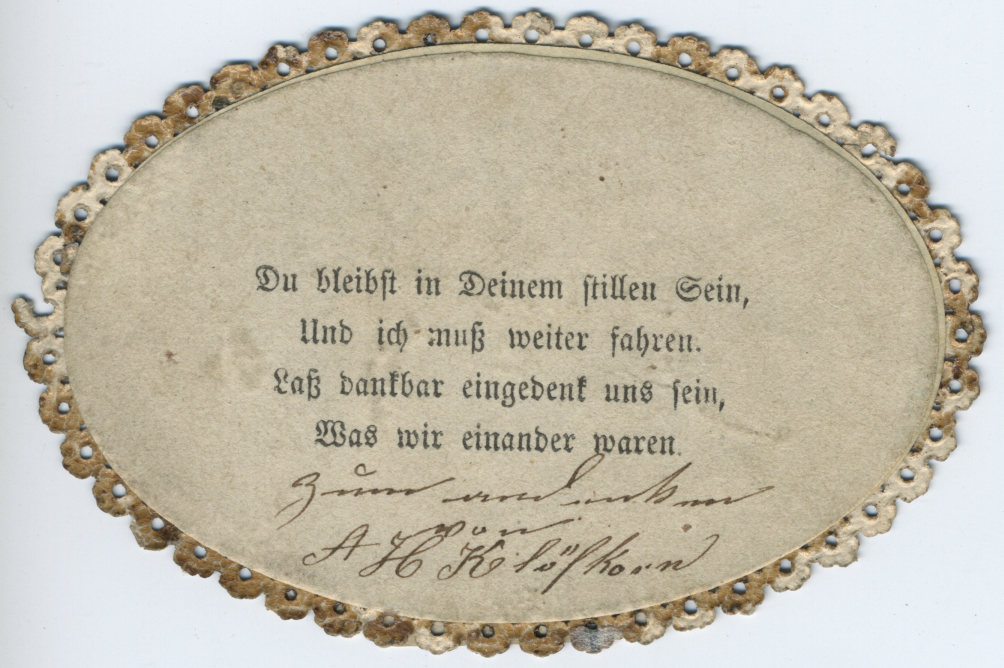 Du bleibst in Deinem stillen Sein,
Und ich muß weiter fahren.
Laß dankbar eingedenk uns sein,
Was wir einander waren.
zum andenken
von
A H Klöfkorn